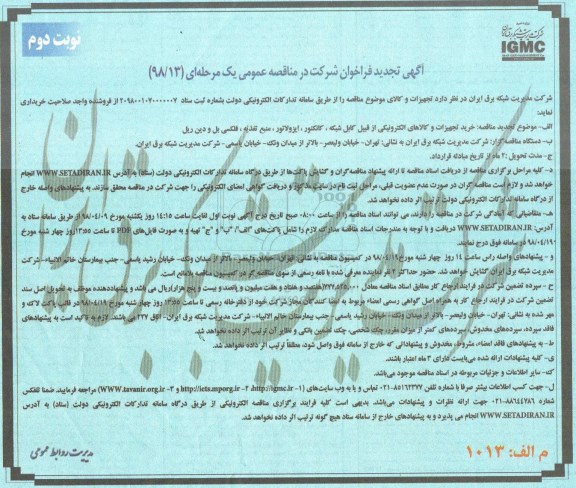 نوبت دوم
شرکت مدیریت شبکه برق ایران
IGMC
آگهی تجدید فراخوان شرکت در مناقصه عمومی یک مرحله‌ای (۹۸/۱۳)
شرکت مدیریت شبکه برق ایران در نظر دارد تجهیزات و کالای موضوع مناقصه را از طریق سامانه تدارکات الکترونیکی دولت بشماره ثبت ستاد ۲۰۹۸۰۰۱۰۷۰۰۰۰۰۰۷ از فروشنده واجد صلاحیت خریداری
نماید:
الف- موضوع تجدید مناقصه: خرید تجهیزات و کالاهای الکترونیکی از قبیل کابل شبکه، کانکتور، ایزولاتور، منبع تغذیه، فلکسی بل و دین ریل
ب- دستگاه مناقصه‌گزار: شرکت مدیریت شبکه برق ایران به نشانی: تهران- خیابان ولیعصر- بالاتر از میدان ونک- خیابان یاسمی- شرکت مدیریت شبکه برق ایران.
ج- مدت تحویل: ۲ ماه از تاریخ مبادله قرارداد.
د- کلیه مراحل برگزاری مناقصه از دریافت اسناد مناقصه تا ارائه پیشنهاد مناقصه‌گران و گشایش پاکت‌ها از طریق درگاه سامانه تدارکات الکترونیکی دولت (ستاد) به آدرس WWW.SETADIRAN.IR انجام
خواهد شد و لازم است مناقصه گران در صورت عدم عضویت قبلی، مراحل ثبت نام در سایت مذکور و دریافت گواهی امضای الکترونیکی را جهت شرکت در مناقصه محقق سازند. به پیشنهادهای واصله خارج
از درگاه سامانه تدارکات الکترونیکی دولت ترتیب اثر داده نخواهد شد.
ه- متقاضیانی که آمادگی شرکت در مناقصه را دارند، می توانند اسناد مناقصه را از ساعت ۰۸:۰۰ صبح تاریخ درج آگهی نوبت اول لغایت ساعت ۱۴:۱۵ روز یکشنبه مورخ ۹۸/۰۴/۰۹ از طریق سامانه ستاد به
آدرس: WWW.SETADIRAN.IR دریافت و با توجه به مندرجات اسناد مناقصه مدارکه لازم را شامل پاکت‌های "الف"، "ب" و "ج" تهیه و به صورت فایل‌های PDF تا ساعت ۱۳:۵۵ روز چهار شنبه مورخ
۹۸/۰۴/۱۹ در سامانه فوق درج نمایند.
و- پیشنهادهای واصله راس ساعت ۱۴ روز چهار شنبه مورخ ۹۸/۰۴/۱۹ در کمیسیون مناقصه به نشانی: تهران- خیابان ولیعصر- بالاتر از میدان ونک- خیابان رشید یاسمی- جنب بیمارستان خاتم الانبیاء- شرکت
مدیریت شبکه برق ایران گشایش خواهد شد. حضور حداکثر ۲ نفر نماینده معرفی شده با نامه رسمی از سوی مناقصه گر در کمیسیون مناقصه بلامانع است.
ح- سپرده تضمین شرکت در فرایند ارجاع کار مطابق اسناد مناقصه معادل ۷۷۷,۸۲۵,۰۰۰/هفتصد و هفتاد و هفت میلیون و پانصد و بیست و پنج هزار/ریال می باشد، و پیشنهاددهنده موظف به تحویل اصل سند
تضمین شرکت در فرایند ارجاع کار به همراه اصل گواهی رسمی امضاء مربوط به امضا کنندگان مجاز شرکت خود از دفترخانه رسمی تا ساعت ۱۳:۵۵ روز چهار شنبه مورخ ۹۸/۰۴/۱۹ در قالب پاکت لاک و
مهر شده به نشانی: تهران- خیابان ولیعصر- بالاتر از میدان ونک- خیابان رشید یاسمی- جنب بیمارستان خاتم الانبیاء- شرکت مدیریت شبکه برق ایران- اتاق ۲۲۷ می باشند. لازم به تاکید است به پیشنهادهای
فاقد سپرده، سپرده‌های مخدوش، سپرده‌های کمتر از میزان مقرر، چک شخصی، چک تضمین بانکی و نظایر آن ترتیب اثر داده نخواهد شد.
ط- به پیشنهادهای فاقد امضاء، مشروط، مخدوش و پیشنهاداتی که خارج از سامانه فوق واصل شود، مطلقاً ترتیب اثر داده نخواهد شد.
ی- کلیه پیشنهادات ارائه شده می‌بایست دارای ۳ ماه اعتبار باشند.
ک- سایر اطلاعات و جزئیات مربوطه در اسناد مناقصه موجود می‌باشد.
ل- جهت کسب اطلاعات بیشتر صرفا با شماره تلفن ۸۵۱۶۲۳۲۷-۰۲۱ تماس و یا به وب سایت‌های (۱- http://igmc.ir ۲- http://iets.mporg.ir و ۳- www.tavanir.org.ir) مراجعه فرمایید. ضمنا تلفکس
شماره ۸۸۶۴۴۷۸۶-۰۲۱ جهت ارائه نظرات و پیشنهادات می‌باشد. بدیهی است کلیه فرایند برگزاری مناقصه الکترونیکی از طریق درگاه سامانه تدارکات الکترونیکی دولت (ستاد) به آدرس
WWW.SETADIRAN.IR انجام می پذیرد و به پیشنهادهای خارج از سامانه ستاد هیچ گونه ترتیب اثر داده نخواهد شد.
م الف: ۱۰۱۳
مدیریت روابط عمومی